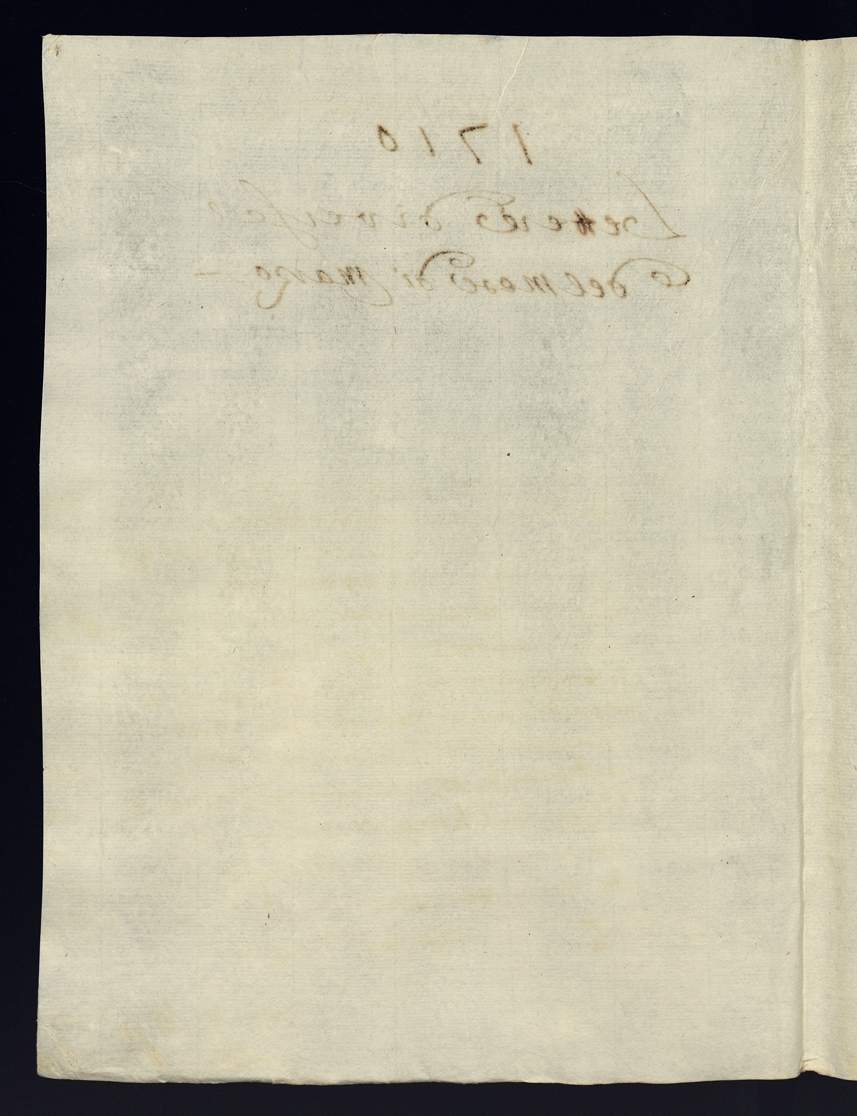 1710
Lettere diverse
del mese di Marzo —